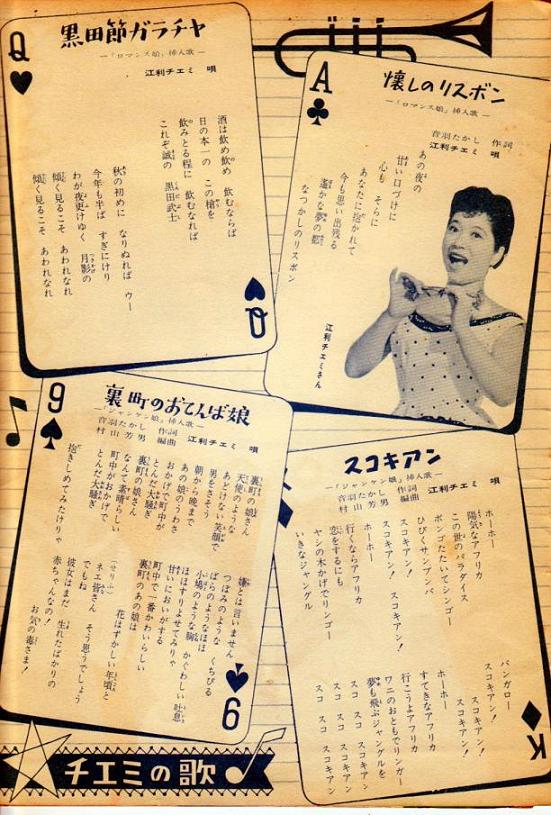 Q
黒田節ガラチャ
―「ロマンス娘」挿入歌―
江利チエミ 唄
酒は飲め飲め 飲むならば
日の本一の この槍を
飲みとる程に 飲むなれば
これぞ誠の 黒田武士
秋の初めに なりぬれば ウー
今年も半ば すぎにけり
わが夜更けゆく 月影の
傾く見るこそ あわれなれ
傾く見るこそ あわれなれ
Q
A
懐しのリスボン
―「ロマンス娘」挿入歌―
音羽たかし 作詞
江利チエミ 唄
あの夜の
甘い口づけに
心も そらに
あなたに抱かれて
今も思い出残る
遙かな夢の都
なつかしのリスボン
江利チエミさん
9
裏町のおてんば娘
―「ジャンケン娘」挿入歌―
音羽たかし 作詞
村山芳男 編曲
江利チエミ 唄
裏町の娘さん
天使のような
あどけない笑顔で
男をさそう
朝から晩まで
あの娘のうわさ
おかげで町中が
とんだ大騒ぎ
裏町の娘さん
なんて素晴らしい
町中がおかげで
とんだ大騒ぎ
抱きしめてみたけりゃ
嫌とは言いません
つぼみのような くちびる
ばらのようなほほ
小鳩のような胸 かぐわしい吐息
ほほすりよせてみりゃ
甘いにおいがする
町中で一番かわいらしい
裏町のあの娘は
花はずかしい年頃と
(せりふ)
ネエ皆さん そう思うでしょう
でもね
彼女はまだ 生れたばかりの
赤ちゃんなの!
お気の毒さま!
9
スコキアン
―「ジャンケン娘」挿入歌―
音羽たかし 作詞
村山芳男 編曲
江利チエミ 唄
ホーホー
陽気なアフリカ
この世のパラダイス
ボンゴたたいてシンゴー
ひびくサンアンバ
スコキアン!
スコキアン! スコキアン!
ホーホー
行くならアフリカ
恋をするにも
ヤシの木かげでリンゴー
いきなジャングル
バンガロー
スコキアン!
スコキアン! スコキアン!
ホーホー
すてきなアフリカ
行こうよアフリカ
ワニのおともでリンガー
夢も飛ぶジャングルを
スコ スコ スコキアン
スコ スコ スコキアン
スコ スコ スコキアン
K
チエミの歌